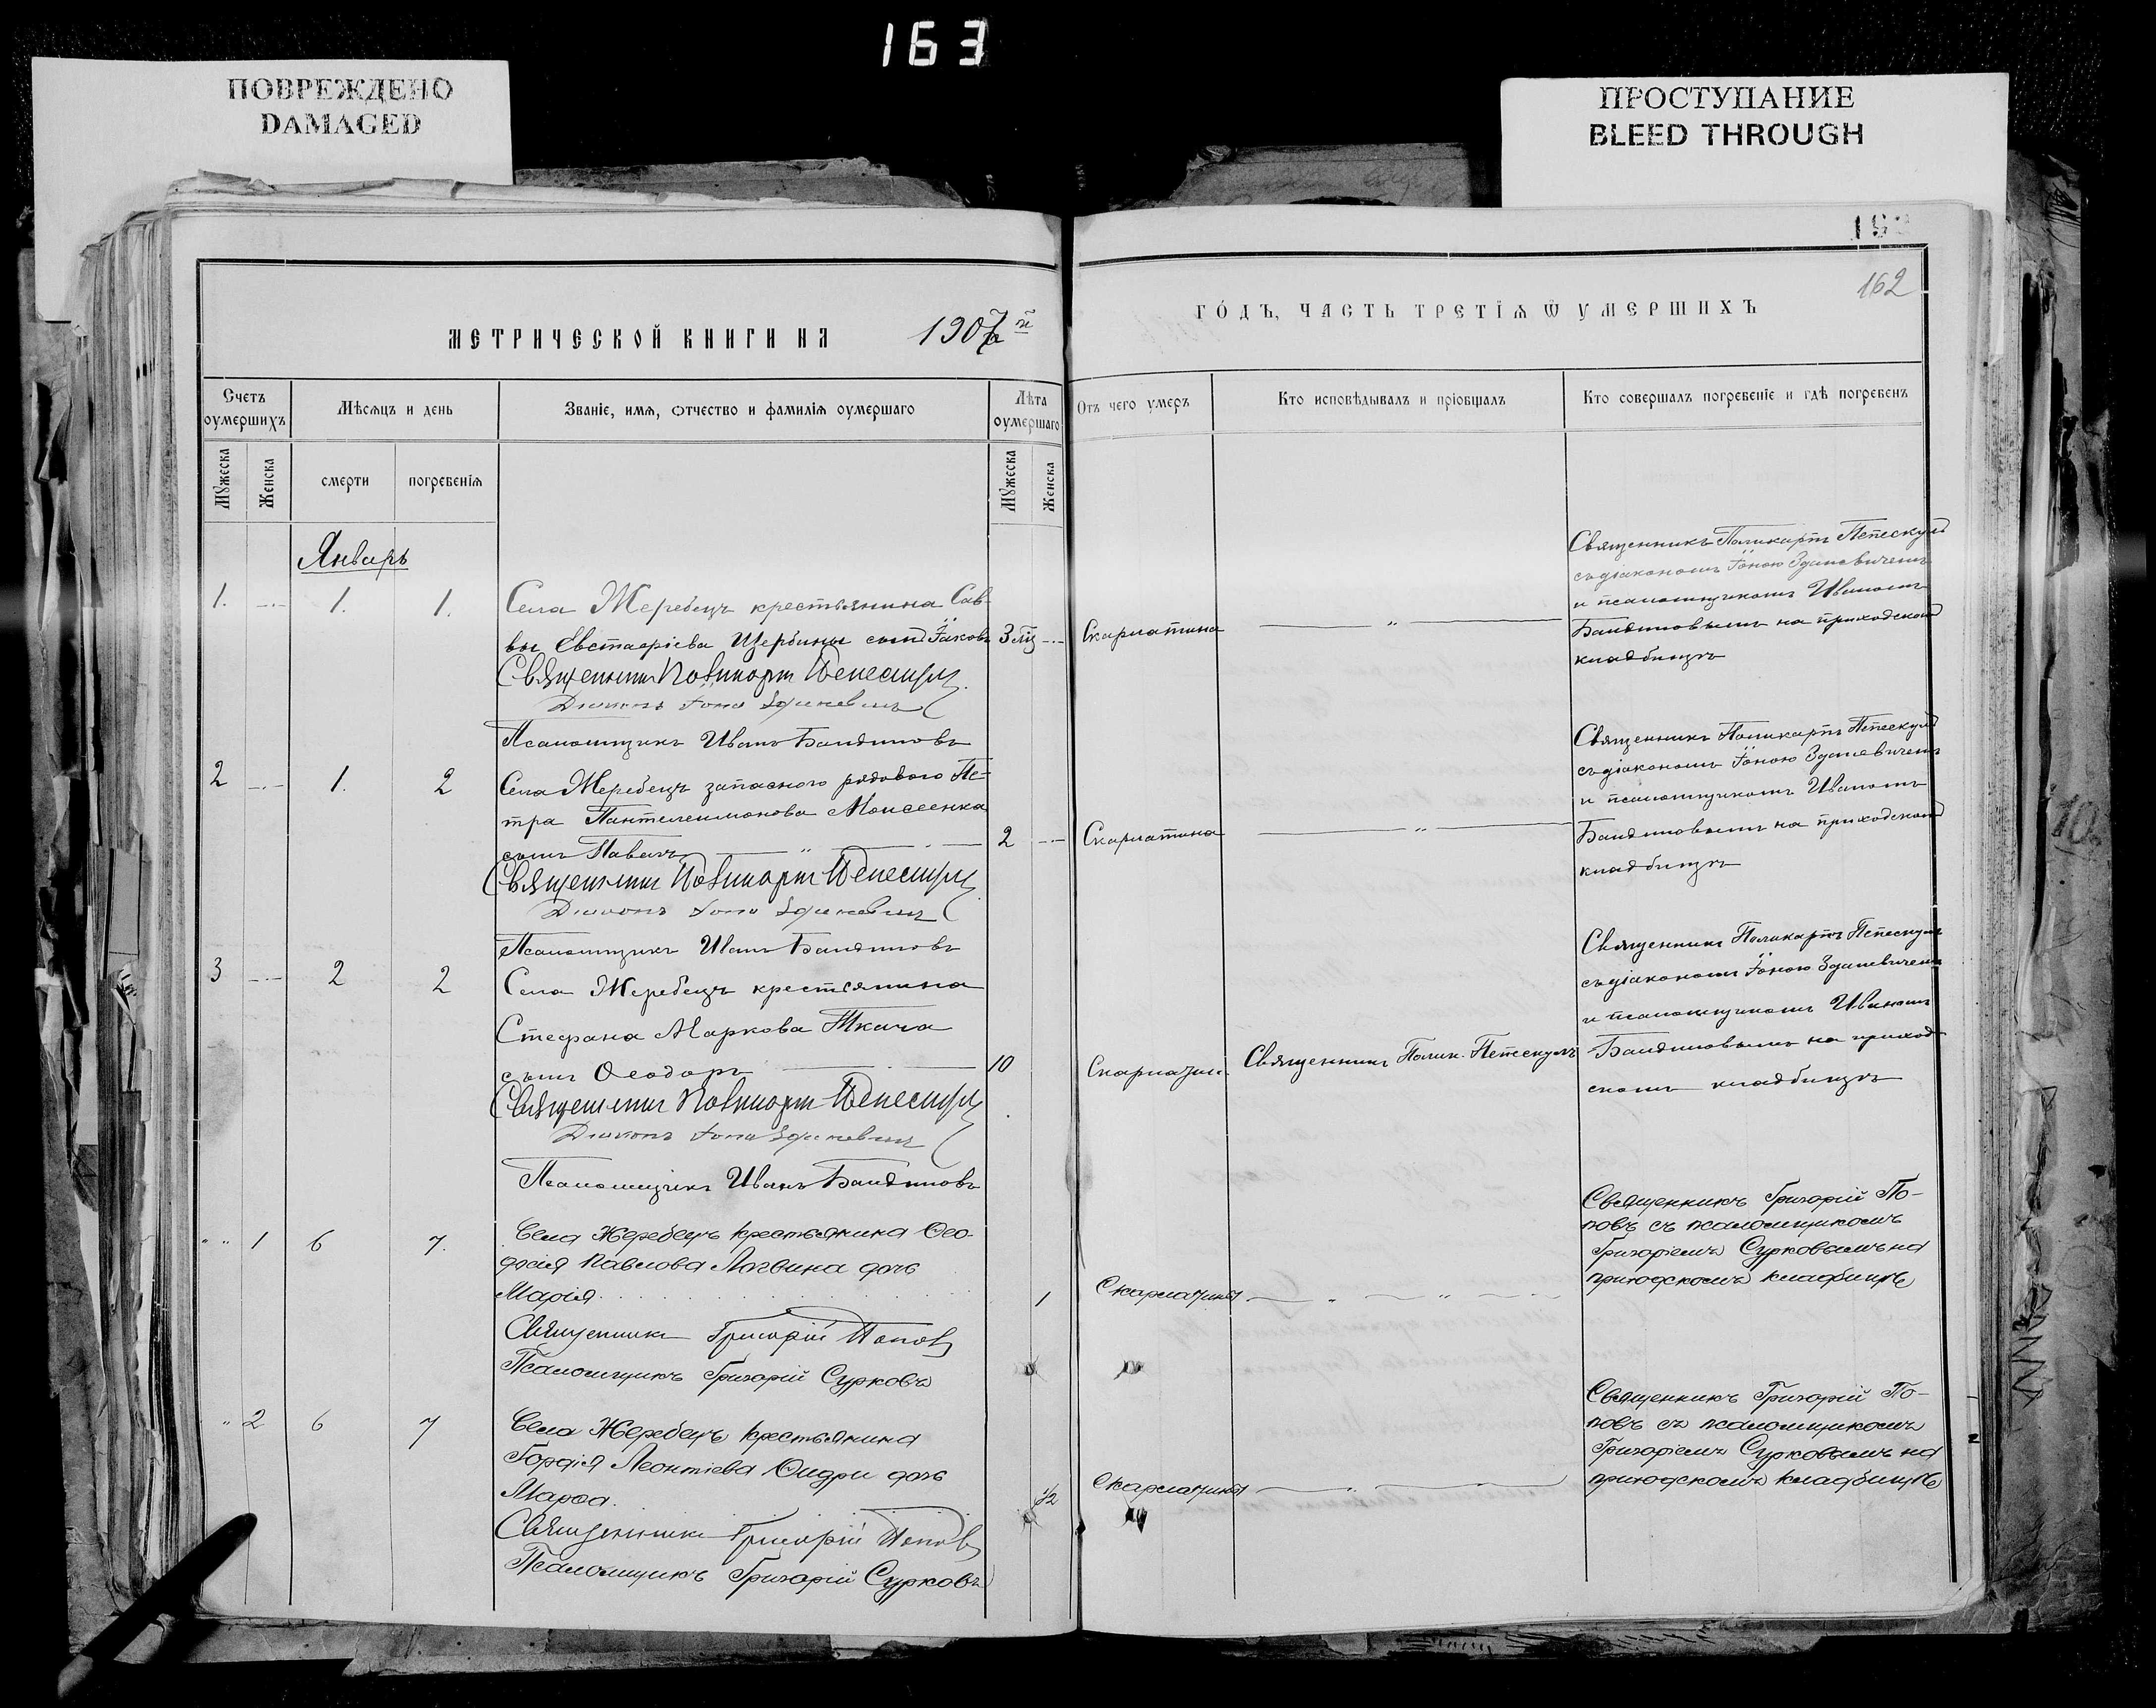 163
ПОВРЕЖДЕНО
DAMAGED
ПРОСТУПАНИЕ
BLEED THROUGH
162
МЕТРИЧЕСКОЙ КНИГИ НА 1907й
ГОДЪ, ЧАСТЬ ТРЕТІѦ Ѿ УМЕРШИХЪ
Счетъ оумершихъ
Мѣсѧцъ и день
Званіе, имѧ, отчество и фамиліѧ оумершаго
Лѣта оумершаго
Отъ чего умеръ
Кто исповѣдывалъ и пріобщалъ
Кто совершалъ погребеніе и гдѣ погребенъ
Мужеска
Женска
смерти
погребеніѧ
Мужеска
Женска
Январь
1. 1. 1.
Села Жеребецъ крестьянина Сав-
вы Евстафіева Щербины сынъ Іаковъ
Скарлатина
Священникъ Поликарпъ Пепескулъ
съ діакономъ Іоною Здиневичемъ
и псаломщикомъ Иваномъ
Баидиновымъ на приходскомъ
кладбищѣ
Священникъ Поликарпъ Пепескулъ
Діаконъ Іона Здиневичъ
Псаломщикъ Иванъ Баидиновъ
2 1. 2
Села Жеребецъ запаснаго рядового Пе-
тра Пантелеимонова Моисеенка
сынъ Павелъ
2
Скарлатина
Священникъ Поликарпъ Пепескулъ
съ діакономъ Іоною Здиневичемъ
и псаломщикомъ Иваномъ
Баидиновымъ на приходскомъ
кладбищѣ
Священникъ Поликарпъ Пепескулъ
Діаконъ Іона Здиневичъ
Псаломщикъ Иванъ Баидиновъ
3 2 2
Села Жеребецъ крестьянина
Стефана Маркова Ткача
сынъ Ѳеодоръ
10
Скарлатин.
Священникъ Полик. Пепескулъ
Священникъ Поликарпъ Пепескулъ
съ діакономъ Іоною Здиневичемъ
и псаломщикомъ Иваномъ
Баидиновымъ на приход-
скомъ кладбищѣ
Священникъ Поликарпъ Пепескулъ
Діаконъ Іона Здиневичъ
Псаломщикъ Иванъ Баидиновъ
1 6 7.
Села Жеребецъ крестьянина Ѳео-
досія Павлова Логвина дочь
Марія
1
Скарлатина
Священникъ Григорій По-
повъ съ псаломщикомъ
Григоріемъ Сурковымъ на
приходскомъ кладбищѣ
Священникъ Григорій Поповъ
Псаломщикъ Григорій Сурковъ
2 6 7
Села Жеребецъ крестьянина
Гордія Леонтіева Ѳидри дочь
Марѳа.
1/2
Скарлатина
Священникъ Григорій По-
повъ съ псаломщикомъ
Григоріемъ Сурковымъ на
приходскомъ кладбищѣ
Священникъ Григорій Поповъ
Псаломщикъ Григорій Сурковъ